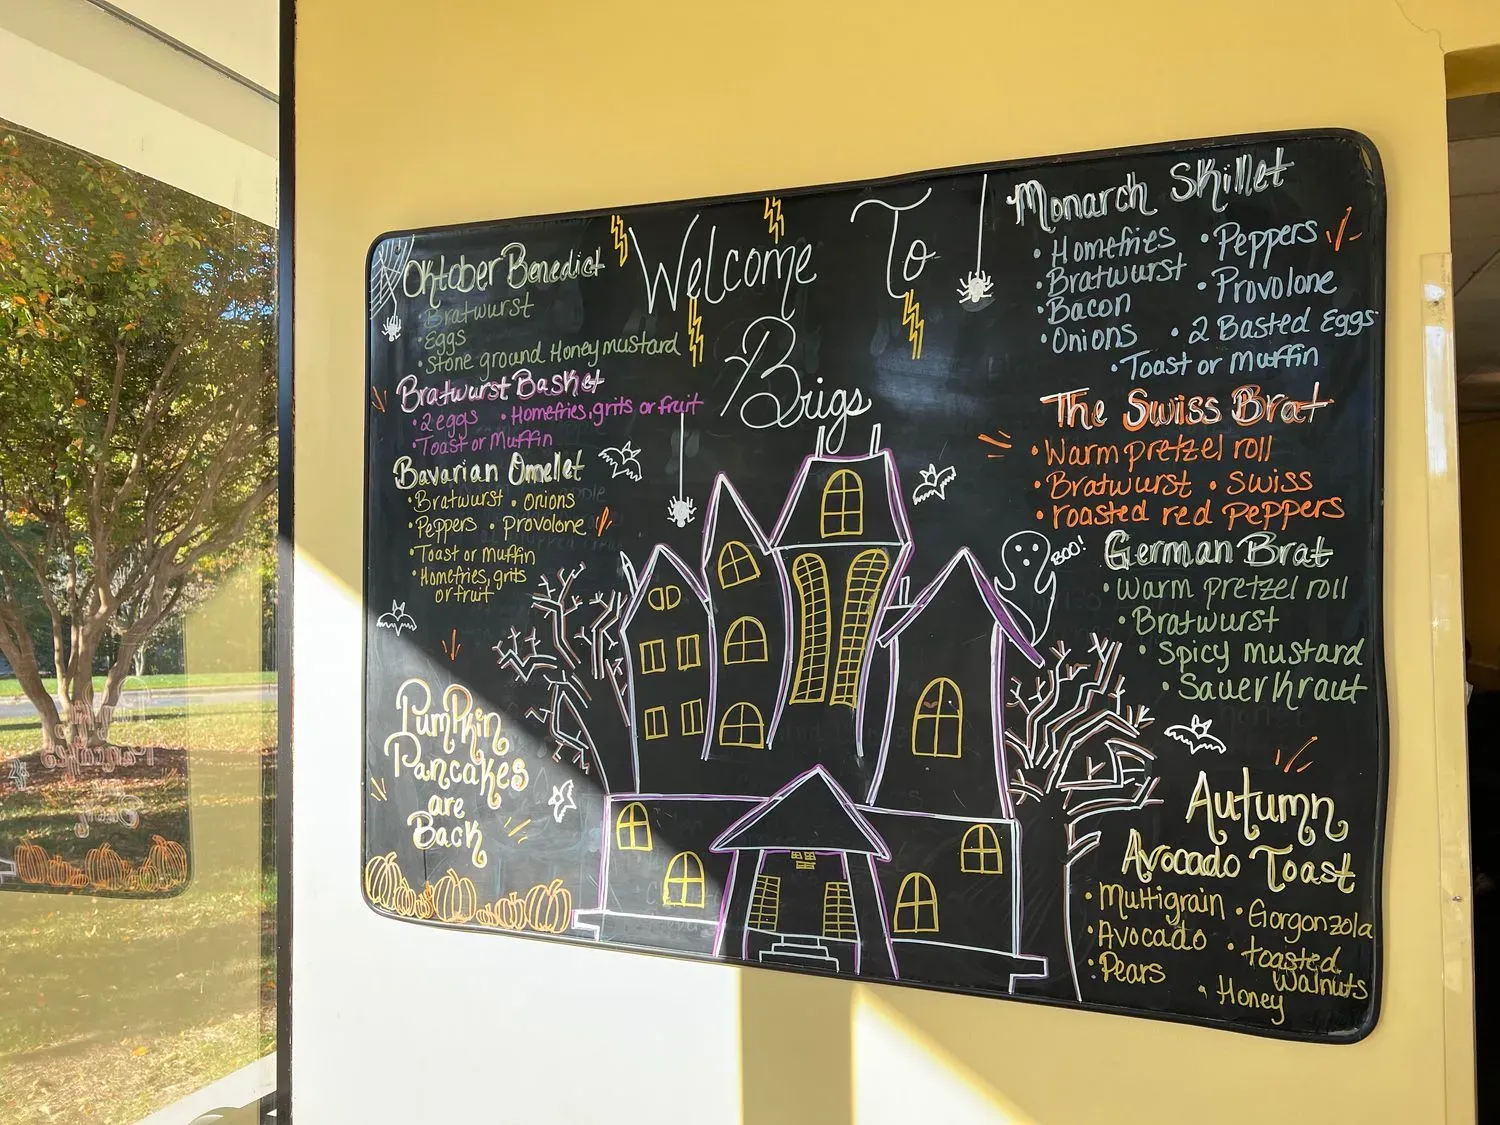 Welcome To
Brigs
Oktober Benedict
• Bratwurst
• Eggs
• Stone ground Honey mustard
Bratwurst Basket
• 2 eggs • Homefries, grits or fruit
• Toast or Muffin
Bavarian Omelet
• Bratwurst • Onions
• Peppers • Provolone
• Toast or Muffin
• Homefries, grits
or fruit
Pumpkin
Pancakes
are
Back
Monarch Skillet
• Homefries • Peppers
• Bratwurst • Provolone
• Bacon
• Onions • 2 Basted Eggs
• Toast or Muffin
The Swiss Brat
• Warm pretzel roll
• Bratwurst • Swiss
• roasted red peppers
BOO!
German Brat
• Warm pretzel roll
• Bratwurst
• Spicy mustard
• Sauerkraut
Autumn
Avocado Toast
• Multigrain • Gorgonzola
• Avocado • toasted
walnuts
• Pears • Honey